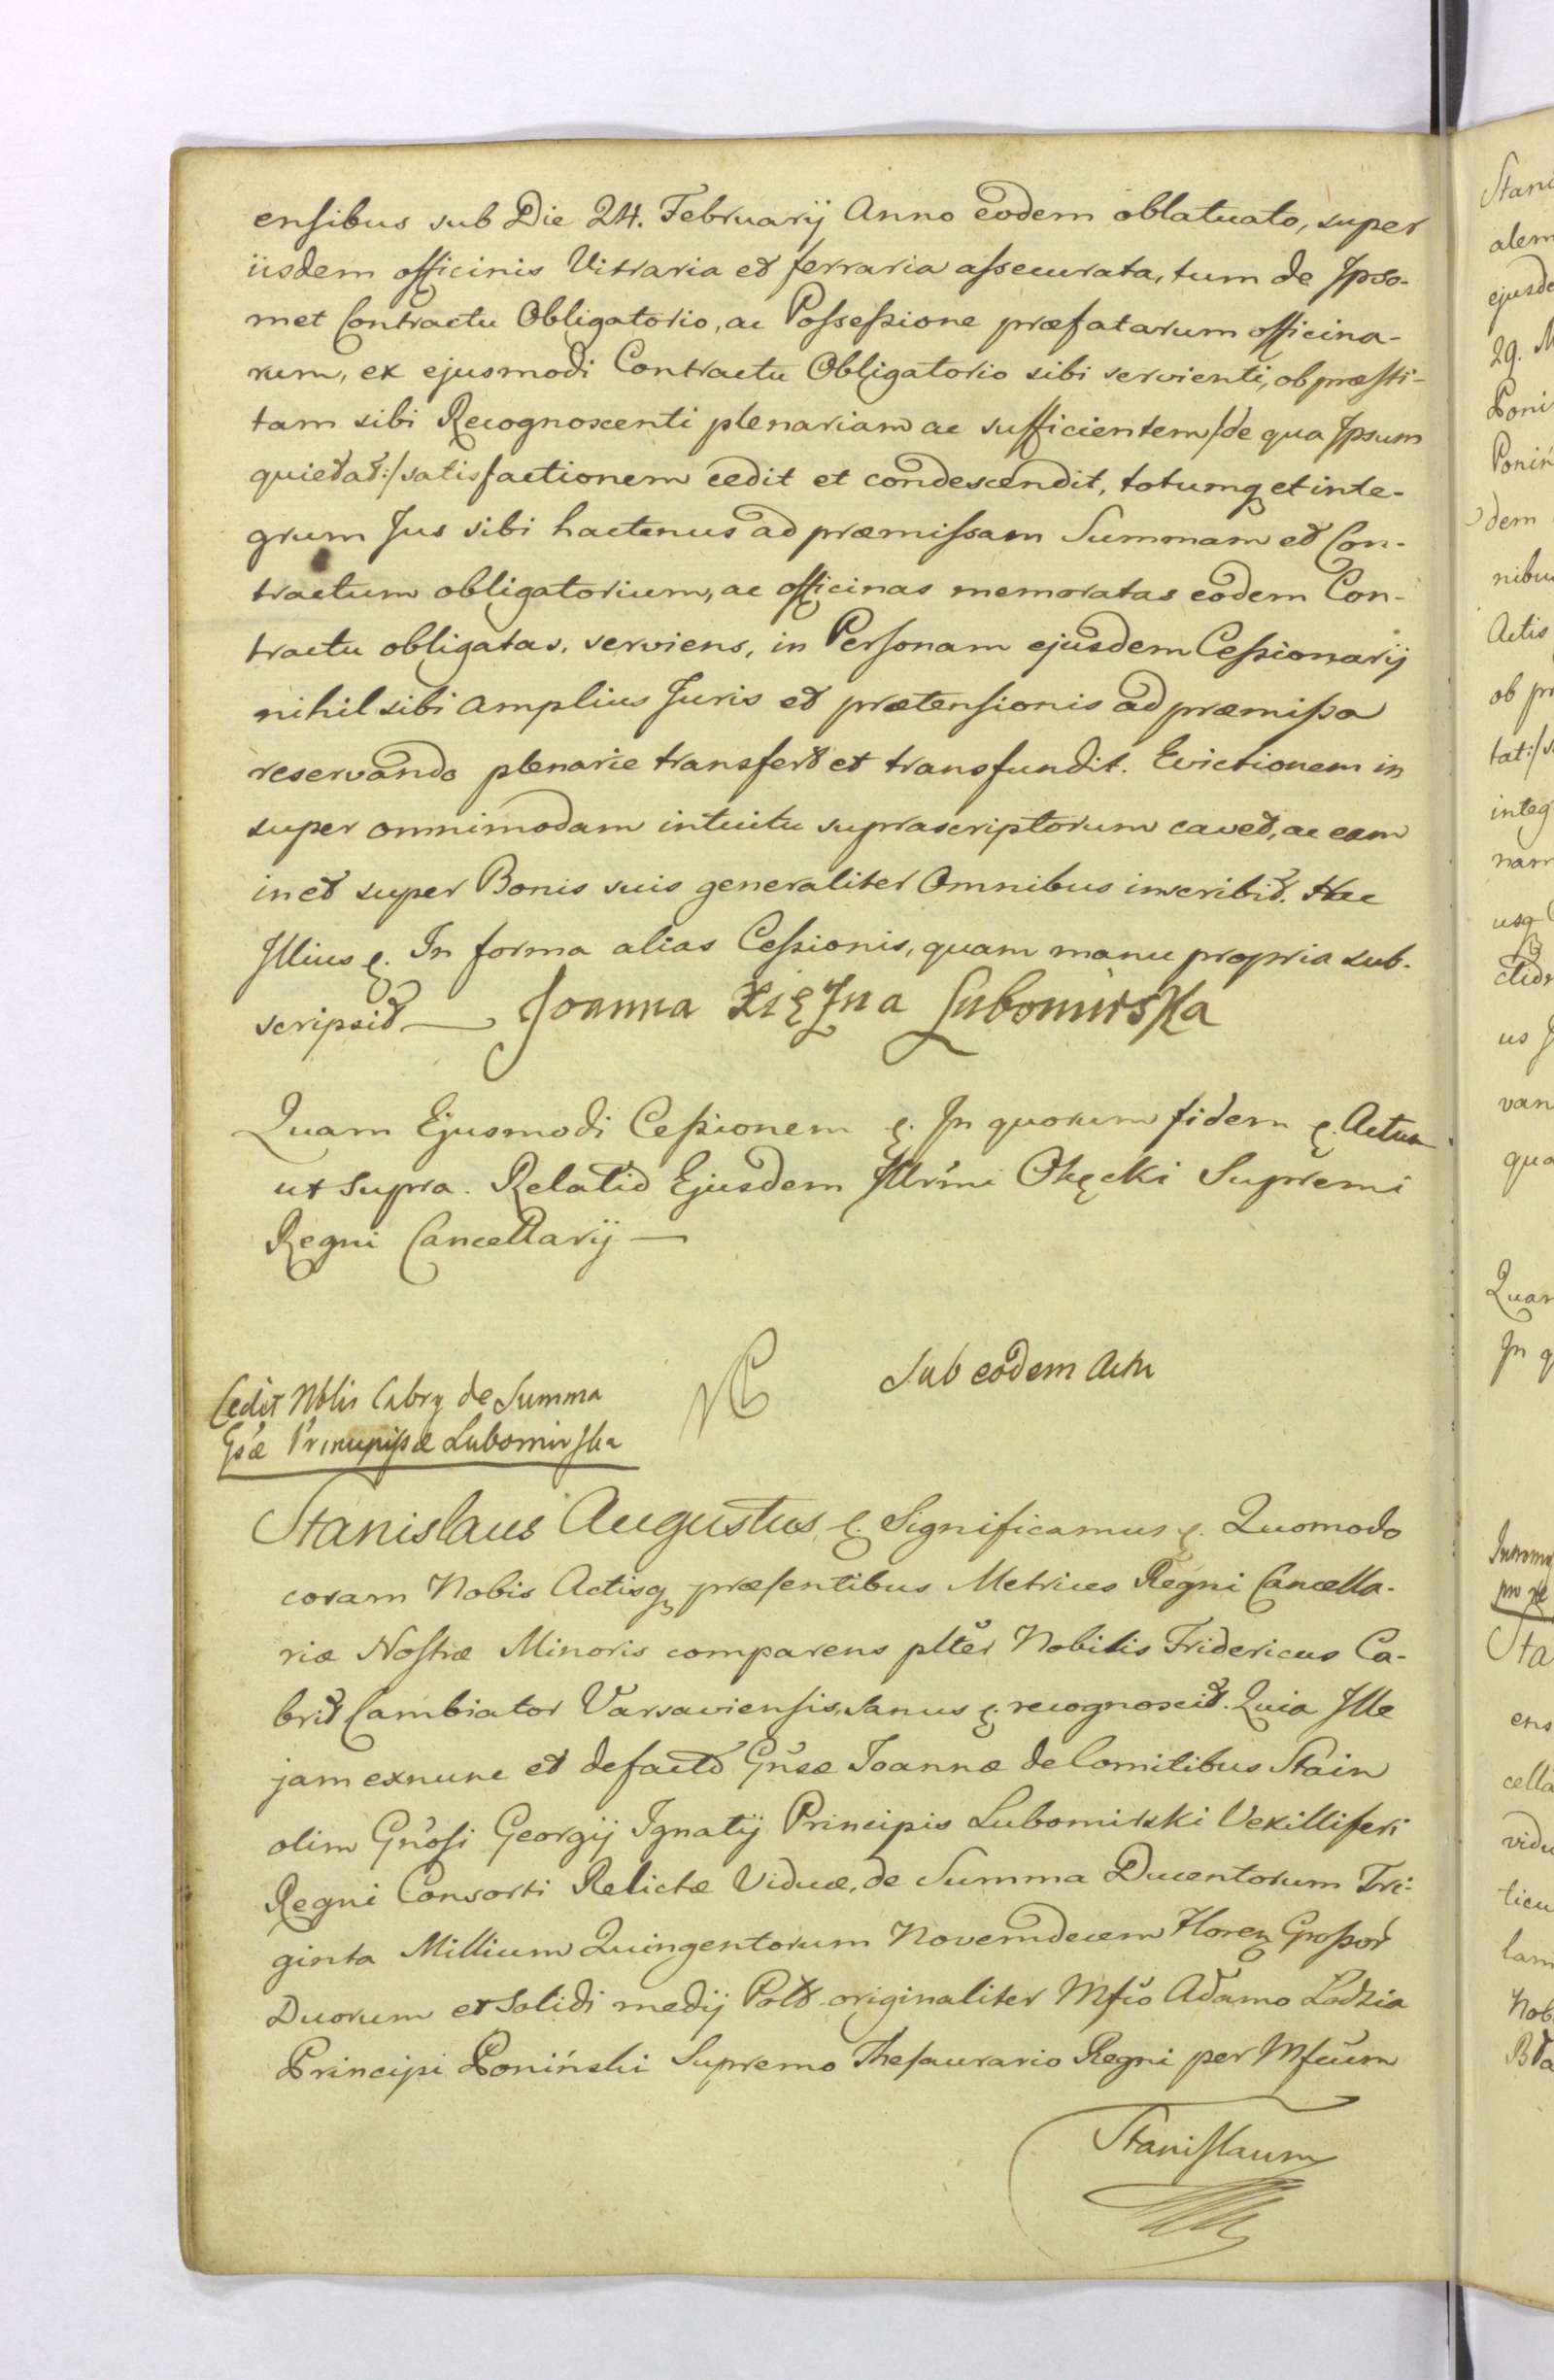 ensibus sub Die 24. Februarij Anno eodem oblatuato, super
iisdem officinis Vitraria et ferraria assecurata, tum de Ipso-
met Contractu Obligatorio, ac Possessione præfatarum officina-
rum, ex ejusmodi Contractu Obligatorio sibi servienti, ob præsti-
tam sibi Recognoscenti plenariam ac sufficientem /de qua Ipsum
quietat:/ satisfactionem cedit et condescendit, totumq et inte-
grum Jus sibi hactenus ad præmissam Summam et Con-
tractum obligatorium, ac officinas memoratas eodem Con-
tractu obligatas, serviens, in Personam ejusdem Cessionarij
nihil sibi amplius Juris et prætensionis ad præmissa
reservando plenarie transfert et transfundit. Evictionem in
super omnimodam intuitu suprascriptorum cavet, ac eam
in et super Bonis suis generaliter Omnibus inscribit. Hac
Illius &. In forma alias Cessionis, quam manu propria sub-
scripsit — Joanna Xiężna Lubomirska
Quam Ejusmodi Cessionem &. In quorum fidem &. Actum
ut Supra. Relatio Ejusdem Illrmi Okęcki Supremi
Regni Cancellarij —
Sub eodem Actu
Cedit Nblis Cabry de Summa
Gsæ Principissæ Lubomirska
Stanislaus Augustus &. Significamus &. Quomodo
coram Nobis Actisq præsentibus Metrices Regni Cancella-
riæ Nostræ Minoris comparens plter Nobilis Fridericus Ca-
brit Cambiator Varsaviensis, sanus &. recognoscit. Quia Ille
jam exnunc et defacto Gnsæ Joannæ de Comitibus Stain
olim Gnosi Georgij Ignatij Principis Lubomirski Vexilliferi
Regni Consorti Relictæ Viduæ, de Summa Ducentorum Tri-
ginta Millium Quingentorum Novemdecem Floren Grossor
Duorum et Solidi medij Polt originaliter Mfco Adamo Lodzia
Principi Poniński Supremo Thesaurario Regni per Mfcum
Stanislaum